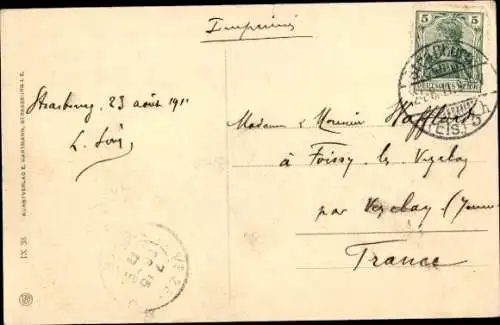 Imprimé
5
5
DEUTSCHES REICH
(ELS.)
Strasburg, 23 août 191
Madame & Monsieur Hafflard
à Foissy les Vezelay
par Vezelay (Yonne
France
KUNSTVERLAG E. HARTMANN, STRASSBURG I. E.
IX 38